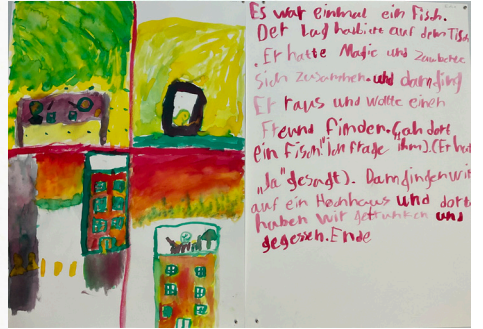 Es war einmal ein Fisch.
Der Lag halbirt auf dem Tisch
. Er hatte Magie und Zauberte
sich zusammen. und dann ging
Er raus und wollte einen
Freund finden. Gah dort
ein Fisch "ich frage ihm). (Er hat
"Ja" gesagt). Dann gingen wir
auf ein Hochhaus und dort
haben wir getrunken und
gegessen. Ende